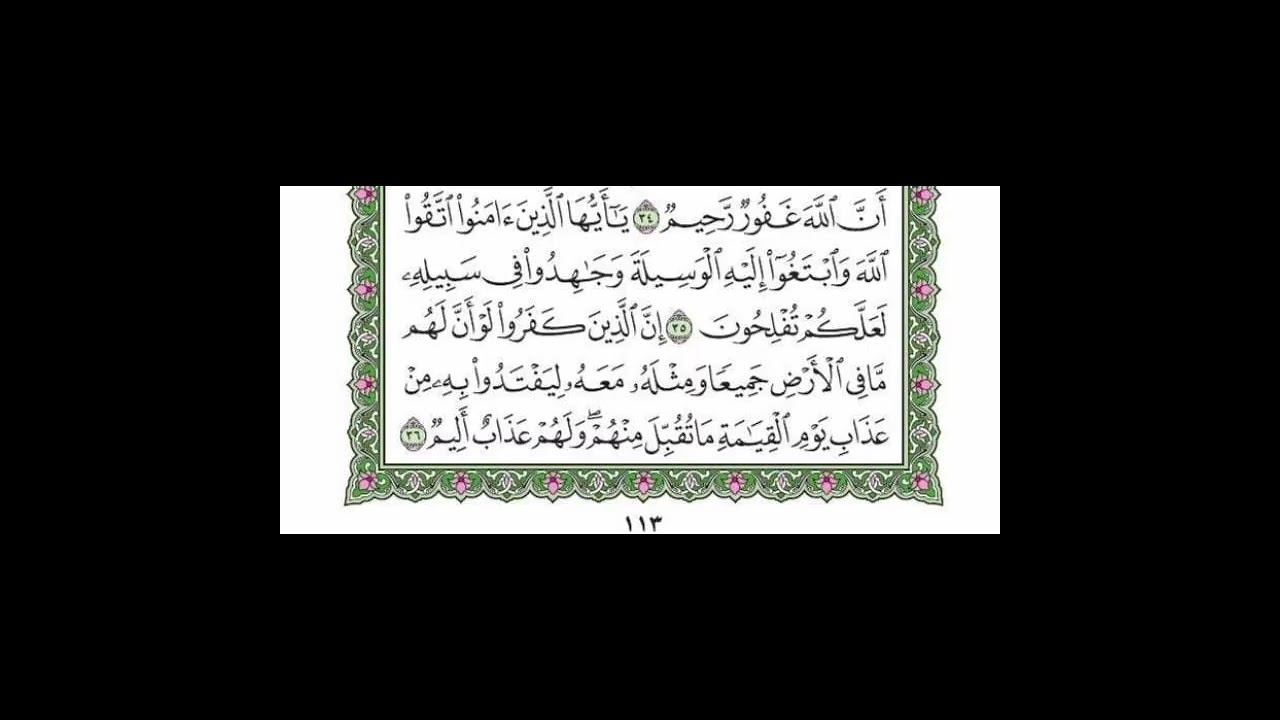 أَنَّ ٱللَّهَ غَفُورٌ رَّحِيمٌ ٣٤ يَٰٓأَيُّهَا ٱلَّذِينَ ءَامَنُوا۟ ٱتَّقُوا۟
ٱللَّهَ وَٱبْتَغُوٓا۟ إِلَيْهِ ٱلْوَسِيلَةَ وَجَٰهِدُوا۟ فِى سَبِيلِهِۦ
لَعَلَّكُمْ تُفْلِحُونَ ٣٥ إِنَّ ٱلَّذِينَ كَفَرُوا۟ لَوْ أَنَّ لَهُم
مَّا فِى ٱلْأَرْضِ جَمِيعًا وَمِثْلَهُۥ مَعَهُۥ لِيَفْتَدُوا۟ بِهِۦ مِنْ
عَذَابِ يَوْمِ ٱلْقِيَٰمَةِ مَا تُقُبِّلَ مِنْهُمْ ۖ وَلَهُمْ عَذَابٌ أَلِيمٌ ٣٦
١١٣